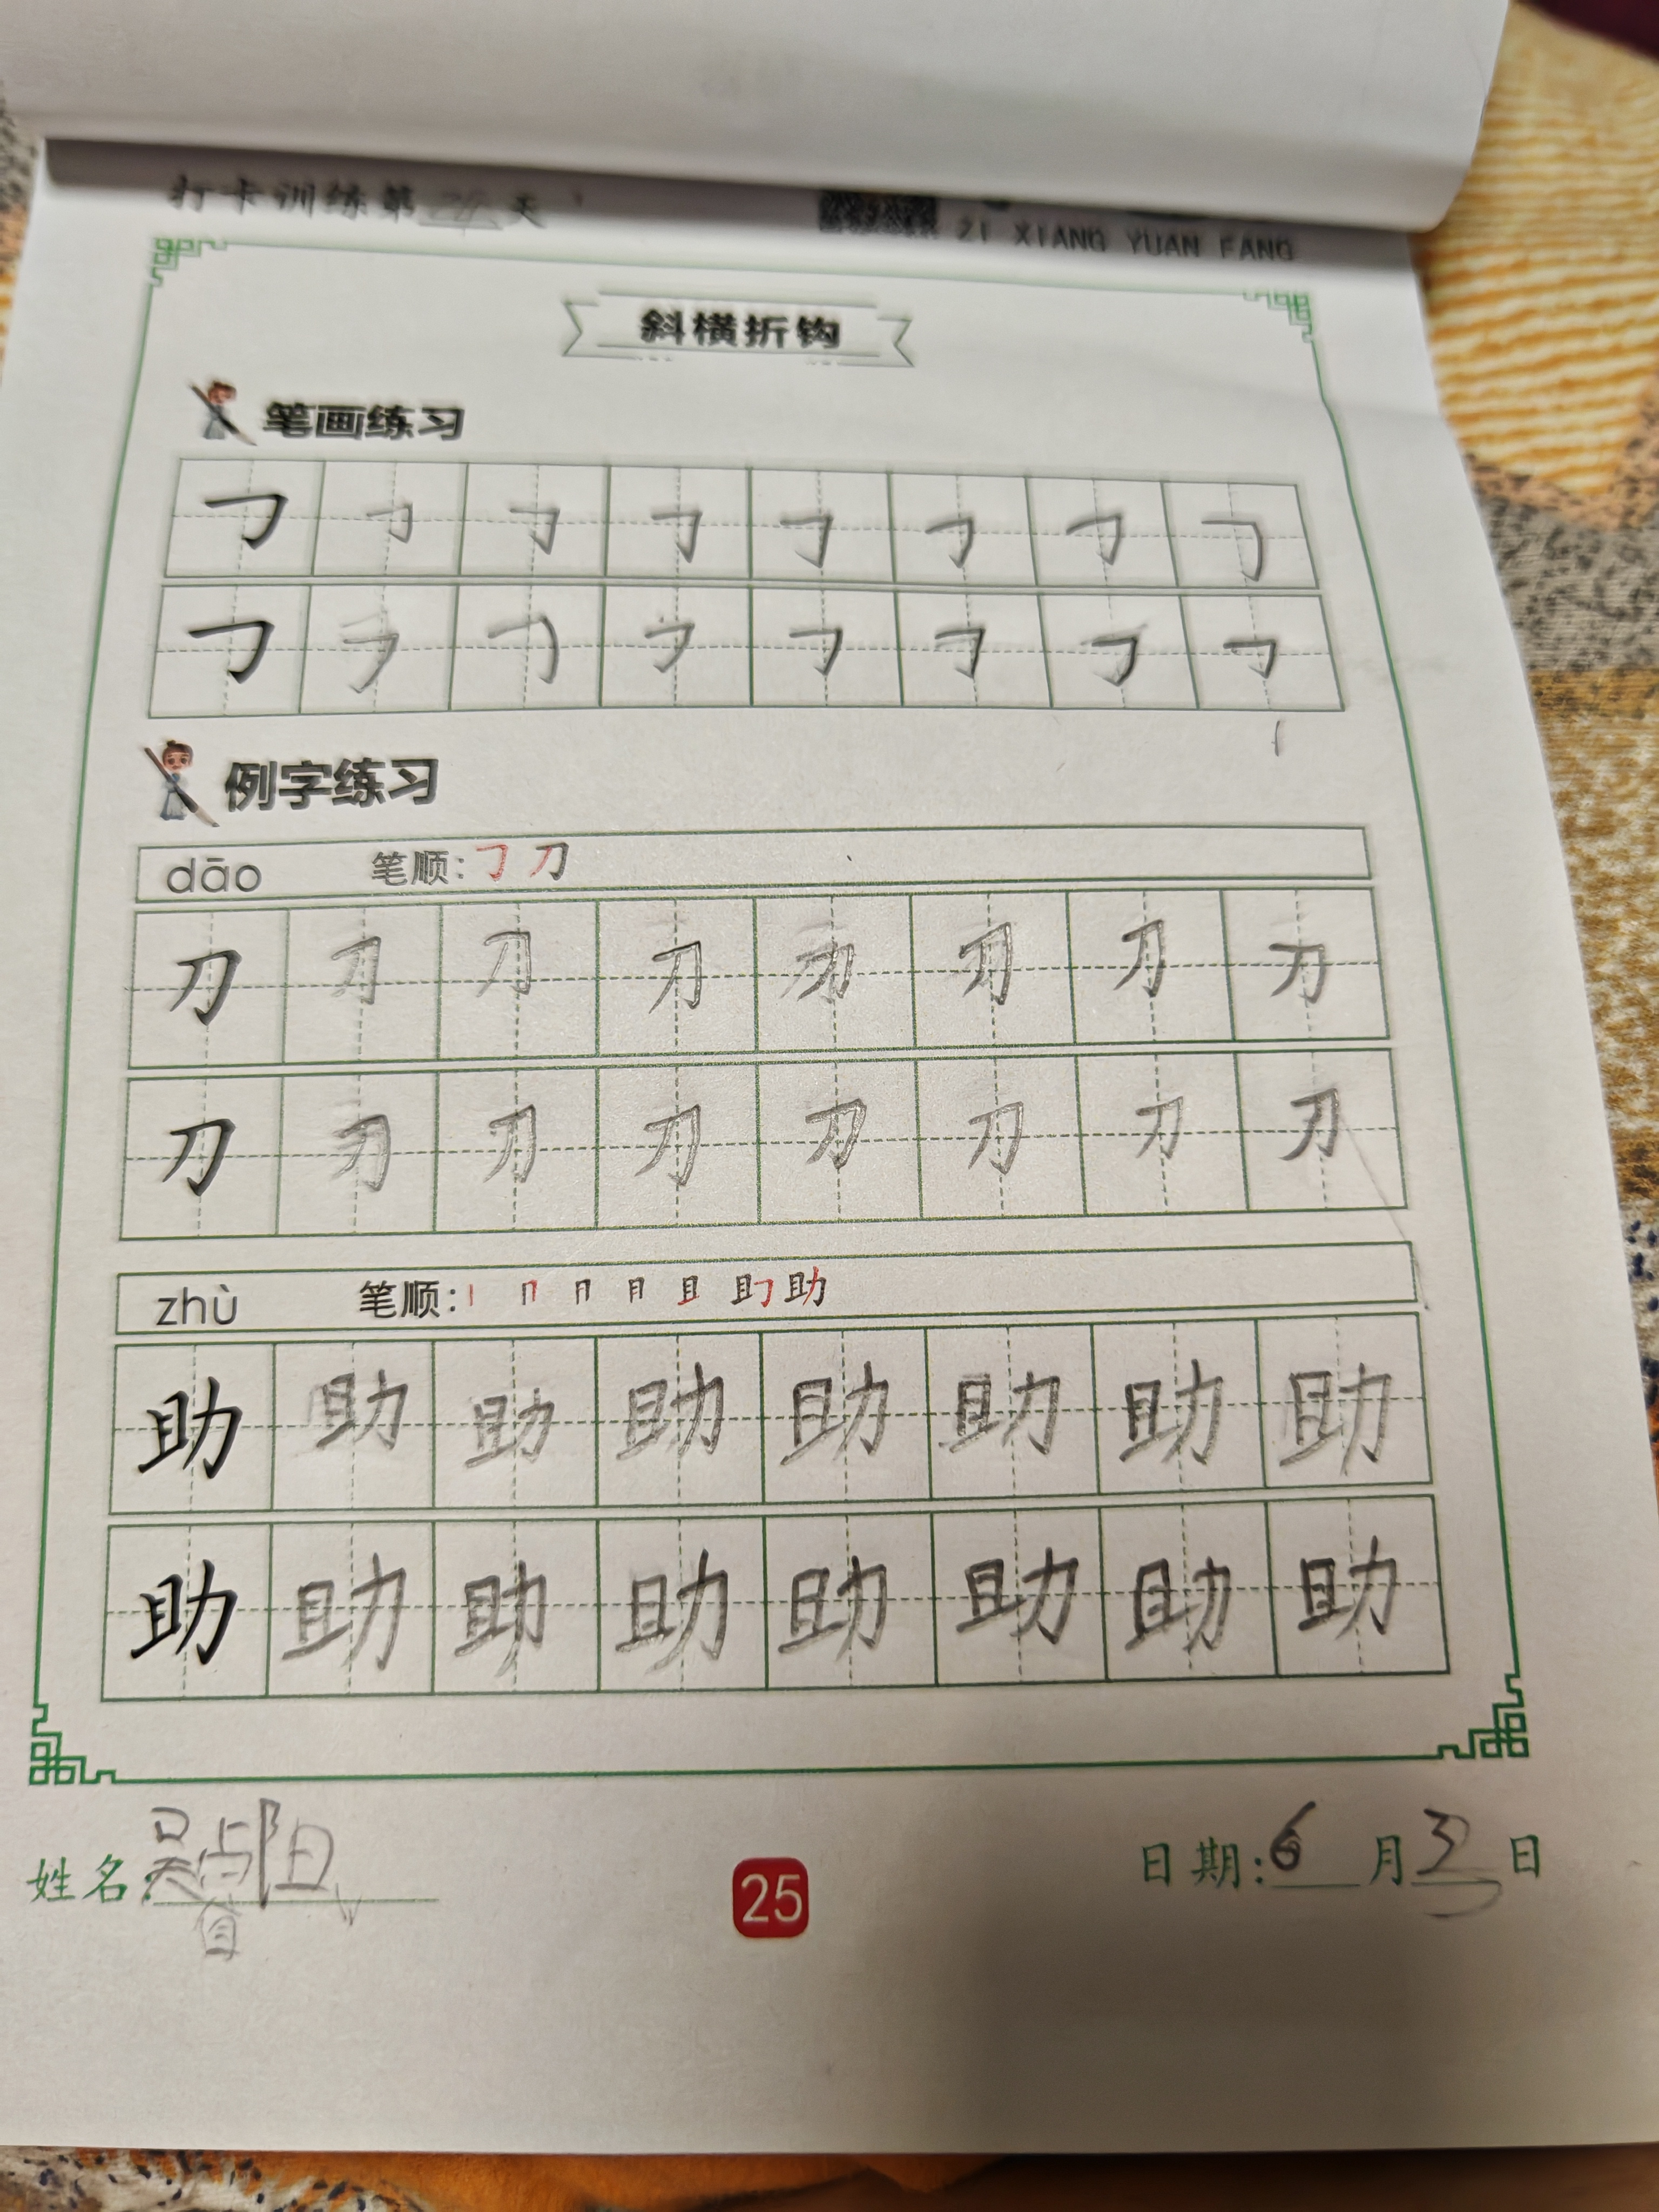 打卡训练第24天
ZI XIANG YUAN FANG
斜横折钩
笔画练习
㇆ ㇆ ㇆ ㇆ ㇆ ㇆ ㇆ ㇆
㇆ ㇆ ㇆ ㇆ ㇆ ㇆ ㇆ ㇆
例字练习
dāo 笔顺: ㇆ 刀
刀 刀 刀 刀 刀 刀 刀 刀
刀 刀 刀 刀 刀 刀 刀 刀
zhù 笔顺: 助
助 助 助 助 助 助 助 助
助 助 助 助 助 助 助 助
姓名: 吴 阳
25
日期: 6 月 3 日